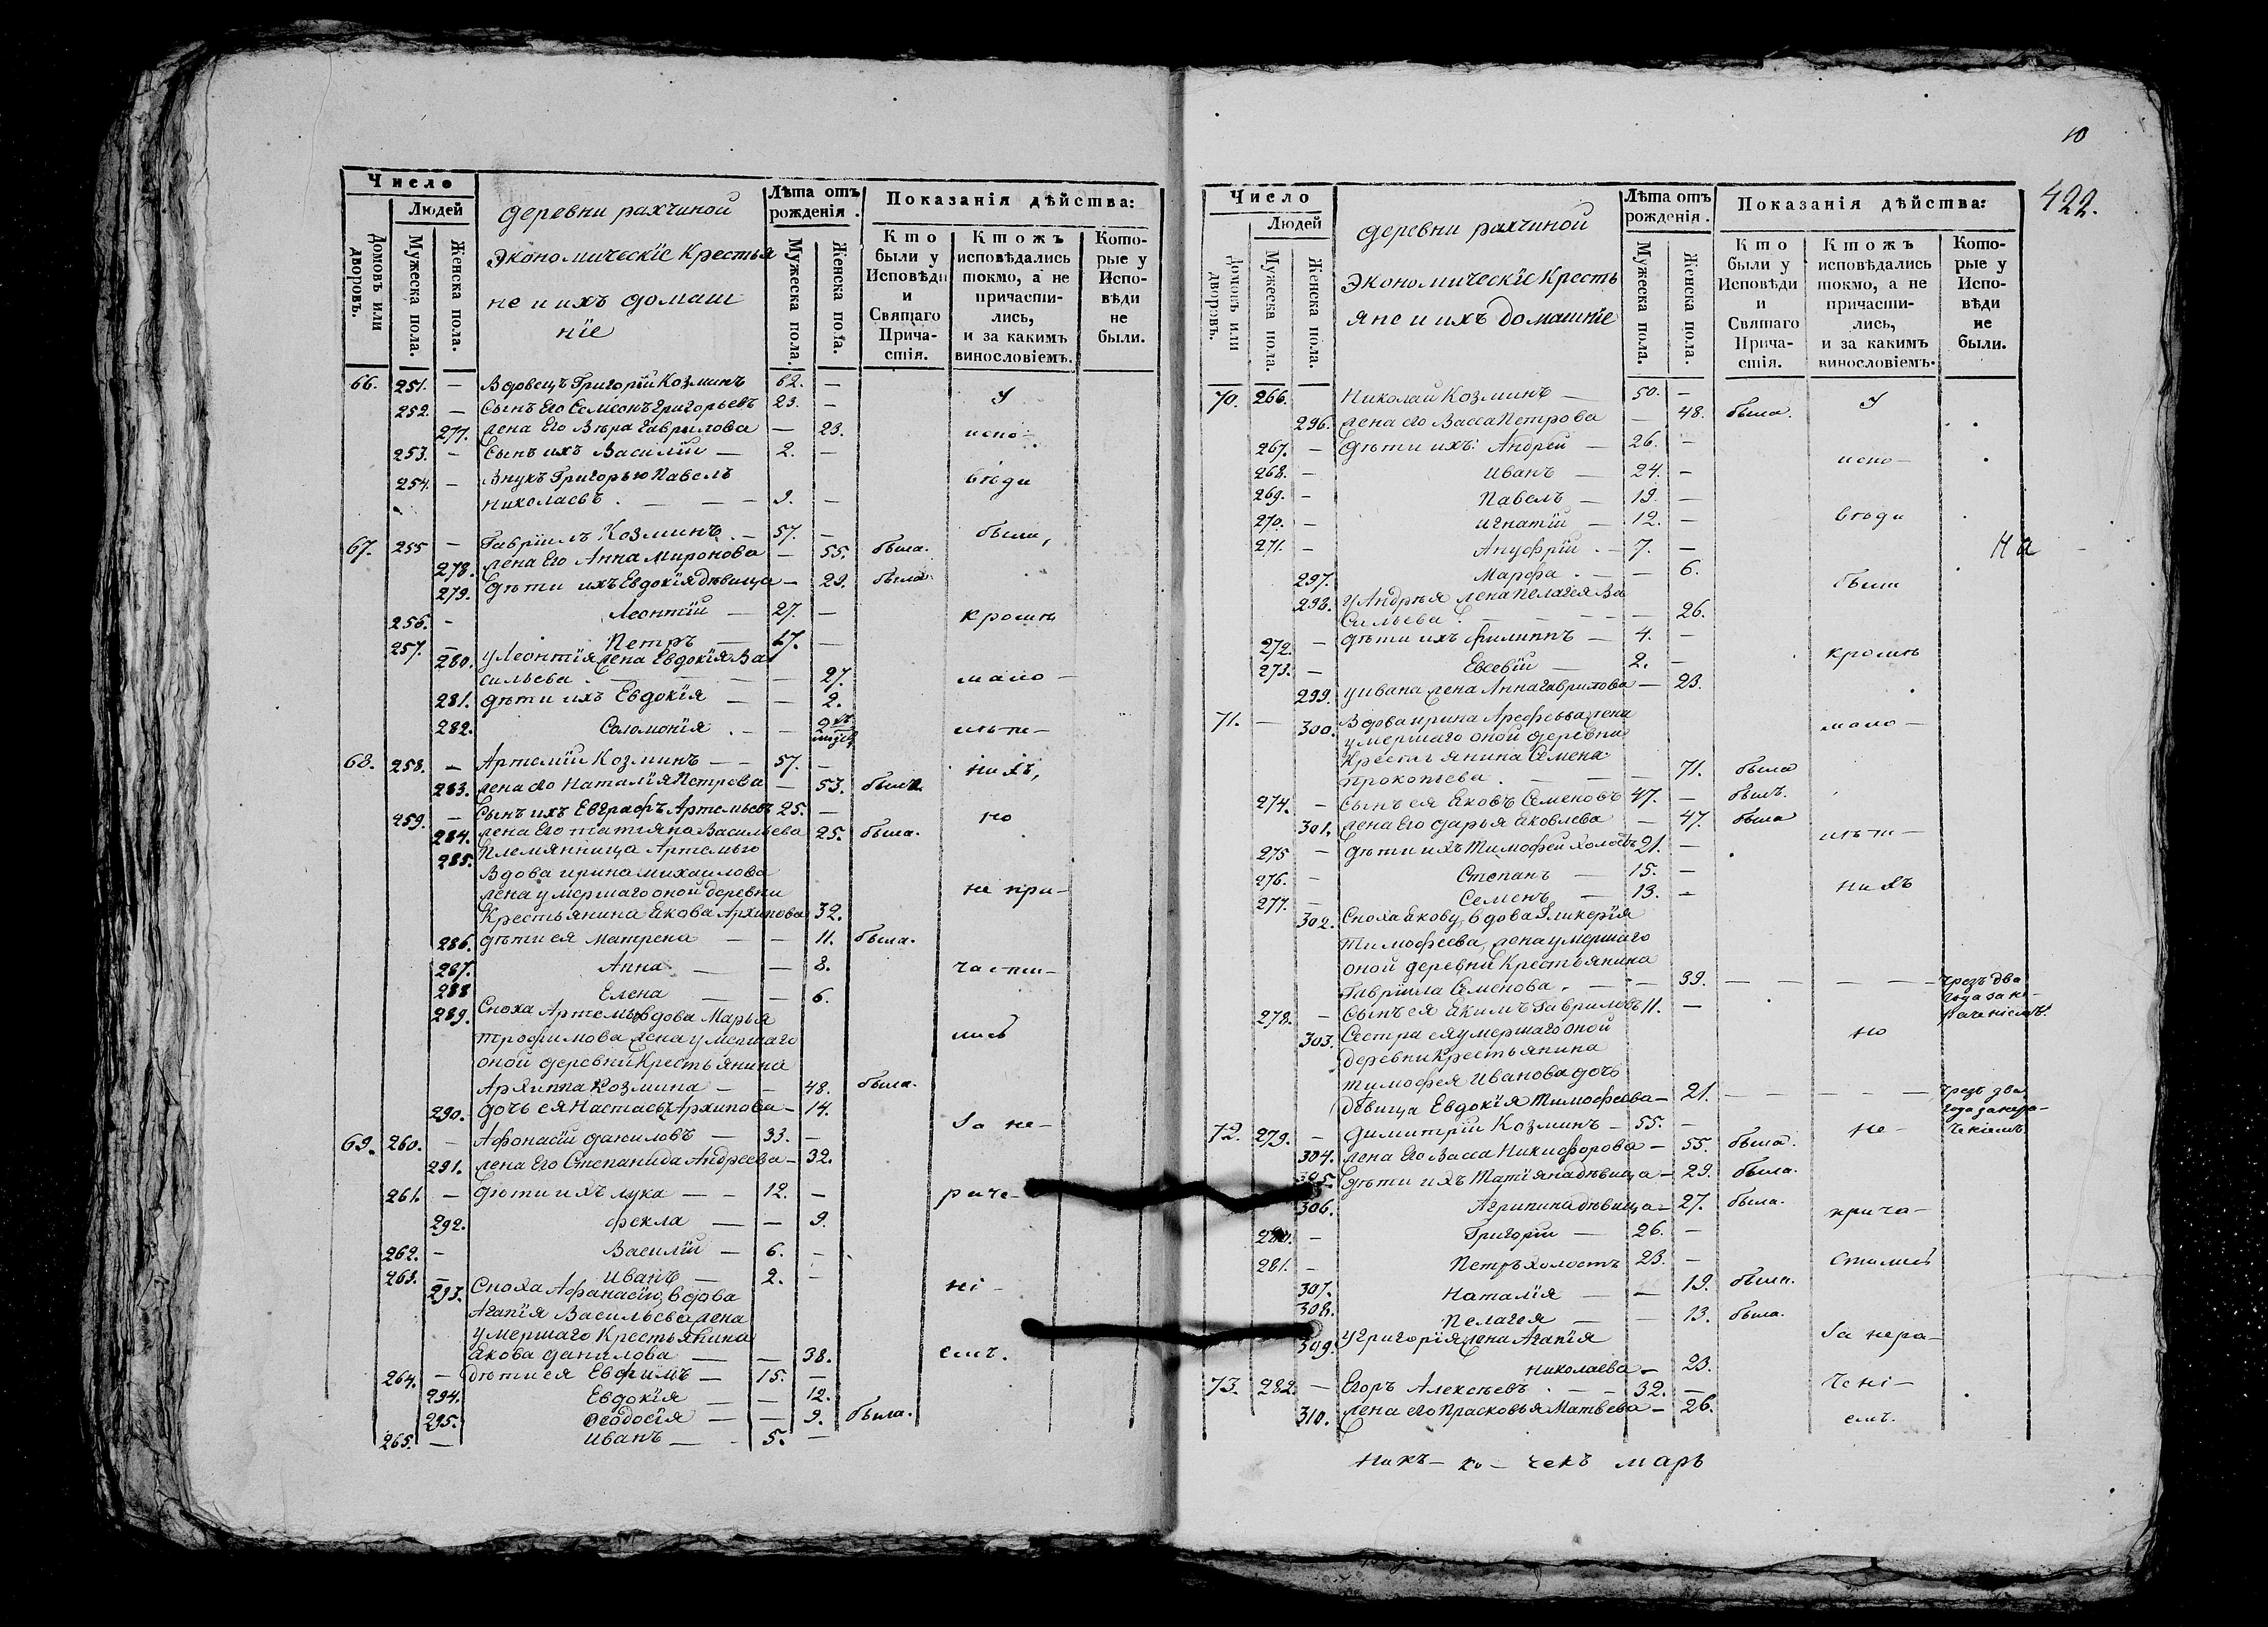 Число
Людей
Домовъ или дворовъ.
Мужеска пола.
Женска пола.
деревни рахчиной
Экономическїе Крестья
не и ихъ домаш
нїе
Лѣта отъ рожденія.
Мужеска пола.
Женска пола.
Показанія дѣйства:
Кто были у Исповѣди и Святаго Причастія.
Ктожъ исповѣдались токмо, а не причастились, и за какимъ винословіемъ.
Которые у Исповѣди не были.
66. 251. — Вдовецъ Григорїй Козминъ 62. — У
252. — Сынъ Его Семїонъ Григорьевъ 23. —
277. жена Его Вѣра Гаврилова — 23. испо-
253. — Сынъ ихъ Василїй — 2. —
254. — Внукъ Григорью Павелъ вѣди
Николаевъ. — — — 9. —
67. 255 — Гаврїилъ Козминъ. — 57. — были,
278. жена Его Анна Миронова — 55. была.
279. Дѣти ихъ Евдокїя дѣвица — 29. была.
256. — Леонтїй — 27. — кромѣ
257. — Петръ — 17. —
280. у Леонтїя жена Евдокїя Ва
сильева. — — — 27. мало-
281. дѣти ихъ Евдокїя — — 2.
282. Соломонїя. — — 2хъ лѣт-
68. 258. — Артемїй Козминъ — — 57. — нихъ,
283. жена его Наталїя Петрова — 53. была.
259. — Сынъ ихъ Евграфъ Артемьевъ 25. — но
284. жена Его татїяна Васильева 25. была.
285. Племянница Артемью
Вдова ирина михаилова
жена умершаго оной деревни не при-
Крестьянина Якова Архипова 32.
286. дѣти ея Матрена — — 11. была.
287. Анна — — 8. части-
288 Елена — — 6.
289. Сноха Артемью вдова Марья
трофимова жена умершаго лись
оной деревни Крестьянина
Архиппа Козмина — — 48. была.
290. дочь ея Настасья Архипова — 14.
69. 260. — Афонасїй даниловъ — 33. — За не-
291. жена Его Степанида Андреева — 32.
261. — дѣти ихъ лука — — 12. — раче-
292. фекла — — 9.
262. — Василїй — 6. —
263. — Иванъ — 2. —
293. Сноха Афанасїю вдова нї-
Агапїя Васильева жена
умершаго Крестьянина
Якова данилова — — 38. емъ.
264. — дѣти ея Евфимъ — 15. —
294. Евдокїя — — 12.
295. Феодосїя — — 9. была.
265. — Иванъ — — 5. —
10
422.
Число
Людей
Домовъ или дворовъ.
Мужеска пола.
Женска пола.
деревни рахчиной
Экономическїе Кресть
яне и ихъ домашнїе
Лѣта отъ рожденія.
Мужеска пола.
Женска пола.
Показанія дѣйства:
Кто были у Исповѣди и Святаго Причастія.
Ктожъ исповѣдались токмо, а не причастились, и за какимъ винословіемъ.
Которые у Исповѣди не были.
70. 266. Николай Козминъ — 50. — У
296. жена его Васса Петрова — 48. была.
267. — Дѣти ихъ: Андрей — 26. —
268. — иванъ — 24. — испо-
269. — Павелъ — 19. —
270. — игнатїй — 12. — вѣди
271. — Ануфрїй. — 7. — На
297. Марфа. — — 6. были
298. у Андрѣя жена Пелагея Ва
сильева. — — — 26.
272. — дѣти ихъ филиппъ — 4. —
273. — Евсевїй — 2. — кромѣ
299. у ивана жена Анна гаврилова — 23.
71. — 300. Вдова ирина Арефьева жена мало-
умершаго оной деревни
Крестьянина Семена
Прокопьева. — — — 71. была
274. — Сынъ ея Яковъ Семеновъ 47. — былъ.
301. жена Его дарья Яковлева — 47. была
275 — дѣти ихъ Тимофей холостъ 21. — лѣт-
276. — Степанъ — 15. —
277. — Семенъ — 13. — нихъ
302. Сноха Якову вдова Гликерїя
Тимофеева, жена умершаго
оной деревни Крестьянина
Гаврїила Семенова. — — 39. — — — — чрезъ два
278. — Сынъ ея Якимъ Гавриловъ 11. — года за не-
раченїемъ.
303. Сестра ея умершаго оной но
деревни Крестьянина
тимофея Иванова дочь
дѣвица Евдокїя Тимофеева — 21. — — — — чрезъ два
года за нера-
72. 279. — Димитрїй Козминъ — 55. — не- ченїемъ
304. жена Его Васса Никифорова — 55. была.
305. Дѣти ихъ Татїяна дѣвица — 29. была.
306. Агрипина дѣвица — 27. была. прича-
280. — Григорїй — 26. —
281. — Петръ холостъ 23. — стились
307. Наталїя — — 19. была.
308. Пелагея — — 13. была.
309. у григорїя жена Агапїя За нера-
Николаева — 23.
73. 282. — Егоръ Алексѣевъ. — — 32. — ченї-
310. жена его Прасковья Матвеева — 26. емъ.
никъ — ко — чекъ марь